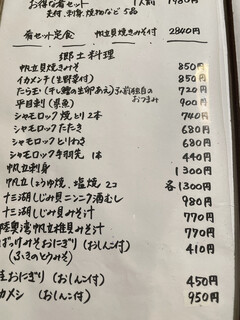 お得な肴セット 1人前 1980円
先付、刺身、焼物など 5品
肴セット定食 帆立貝焼きみそ付 2840円
郷土料理
帆立貝焼きみそ 850円
イカメンチ(生野菜付) 850円
たら玉(干し鱈の生卵あえ) 720円
平目刺(県魚) 900円
シャモロック 焼とり2本 740円
シャモロック たたき 680円
シャモロック とりわさ 680円
シャモロック 手羽先 1本 440円
帆立刺身 1300円
帆立(しょうゆ焼、塩焼)2コ 各1300円
十三湖しじみ貝ニンニク酒むし 980円
十三湖しじみ貝みそ汁 770円
陸奥湾帆立稚貝みそ汁 770円
ばっけみそおにぎり(おしんこ付) 410円
(ふきのとうみそ)
おにぎり(おしんこ付) 450円
カメシ(おしんこ付) 950円